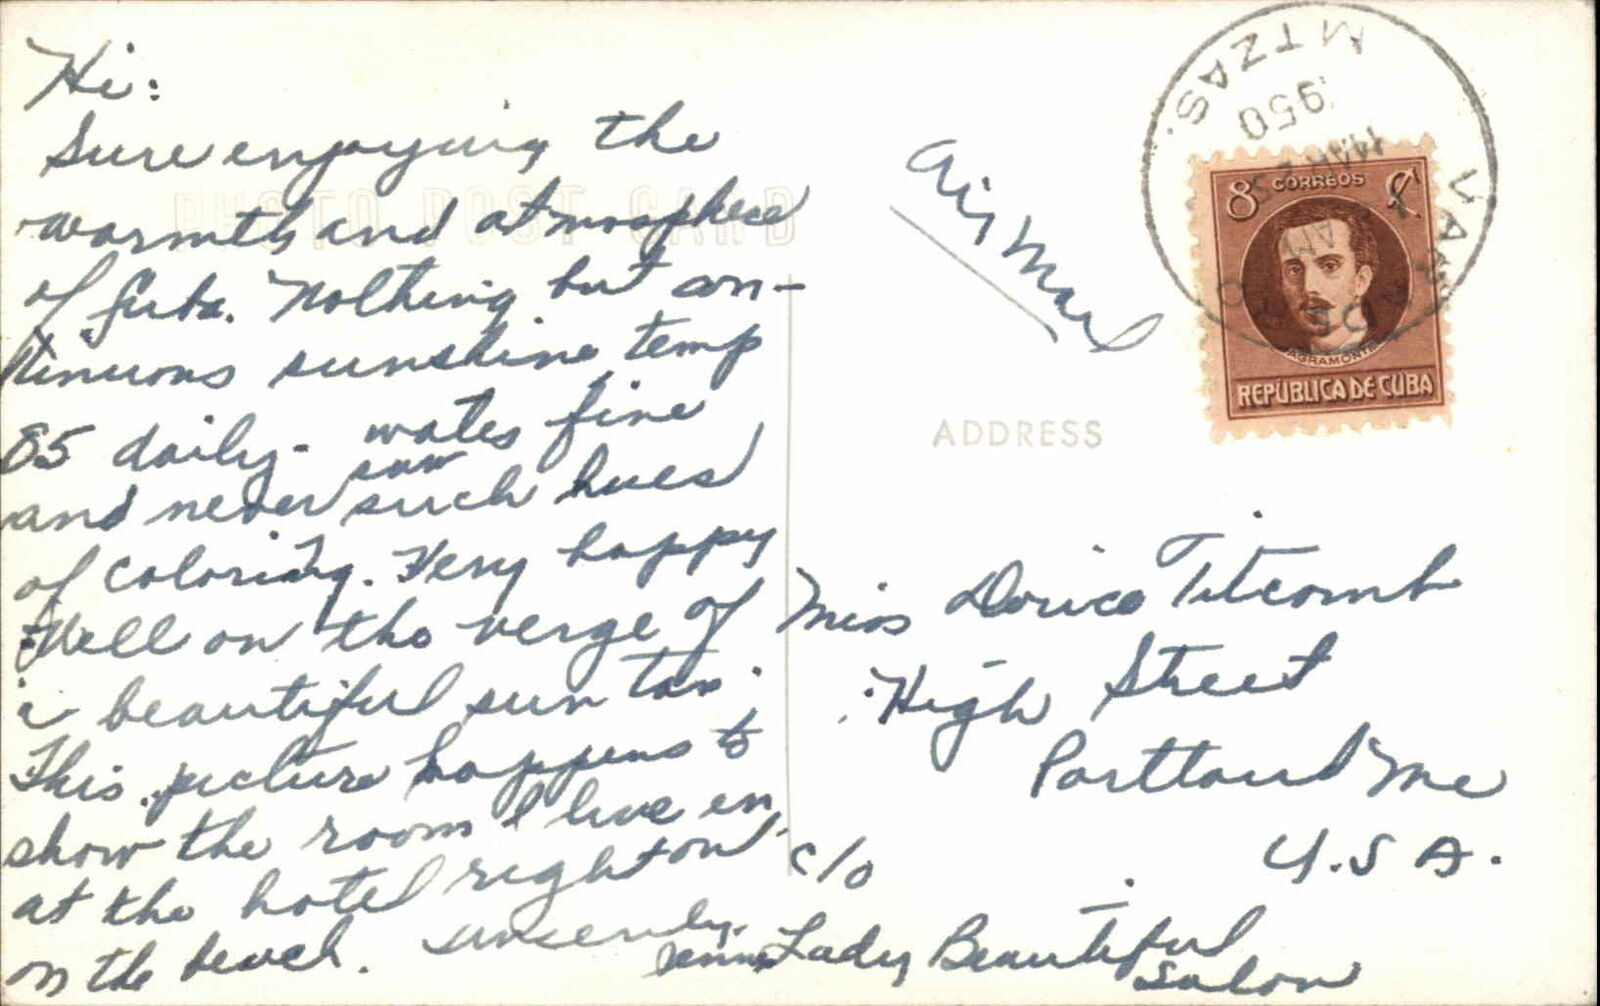 Hi:
Sure enjoying the
warmth and atmosphere
of Cuba. Nothing but con-
tinuous sunshine temp
85 daily - water fine
and never saw such hues
of coloring. Very happy
Well on the verge of
a beautiful sun tan.
This picture happens to
show the room I live in
at the hotel right on
on the beach. Sincerely,
PHOTO POST CARD
Air Mail
ADDRESS
Miss Dorice Titcomb
High Street
Portland Me
U.S A.
c/o
Lady Beautiful
Salon
VARADERO
MTZAS.
950
MAR
AM
8 CORREOS ¢
AGRAMONTE
REPUBLICA DE CUBA